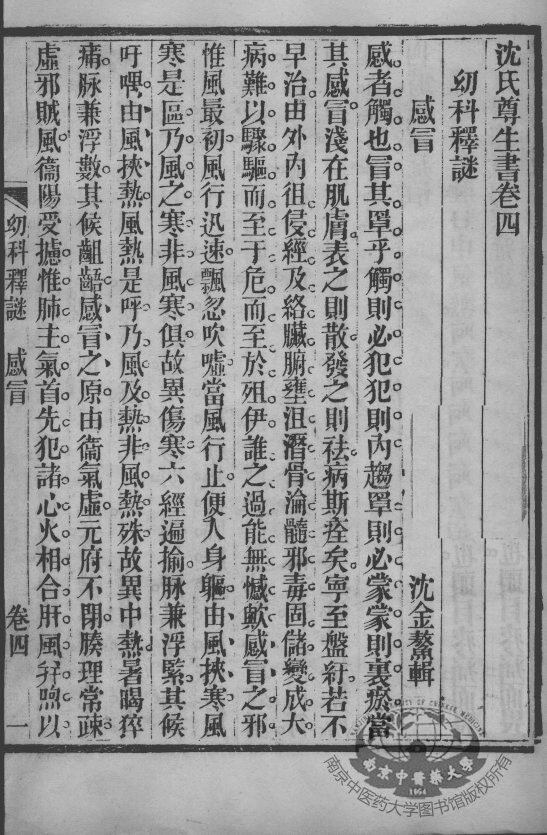 沈氏尊生書卷四
幼科釋謎
感冒
沈金鰲輯
感者觸也冒其罩乎觸則必犯犯則內趨罩則必蒙蒙則裏瘀當
其感冒淺在肌膚表之則散發之則祛病斯痊矣寧至盤紆若不
早治由外內徂侵經及絡臟腑壅沮潛骨淪髓邪毒固儲變成大
病難以驟驅而至于危而至於殂伊誰之過能無憾歟感冒之邪
惟風最初風行迅速飄忽吹噓當風行止便入身軀由風挾寒風
寒是區乃風之寒非風寒俱故異傷寒六經遍揄脉兼浮緊其候
吁嘿由風挾熱風熱是呼乃風及熱非風熱殊故異中熱暑暍猝
痡脉兼浮數其候齟齬感冒之原由衞氣虛元府不閉腠理常疎
虛邪賊風衞陽受攄惟肺主氣首先犯諸心火相合肝風弁煦以
幼科釋謎 感冒 卷四 一
SOCIETY OF CHINESE MEDICINE
南京中醫藥大學
1954
南京中医药大学图书馆版权所有